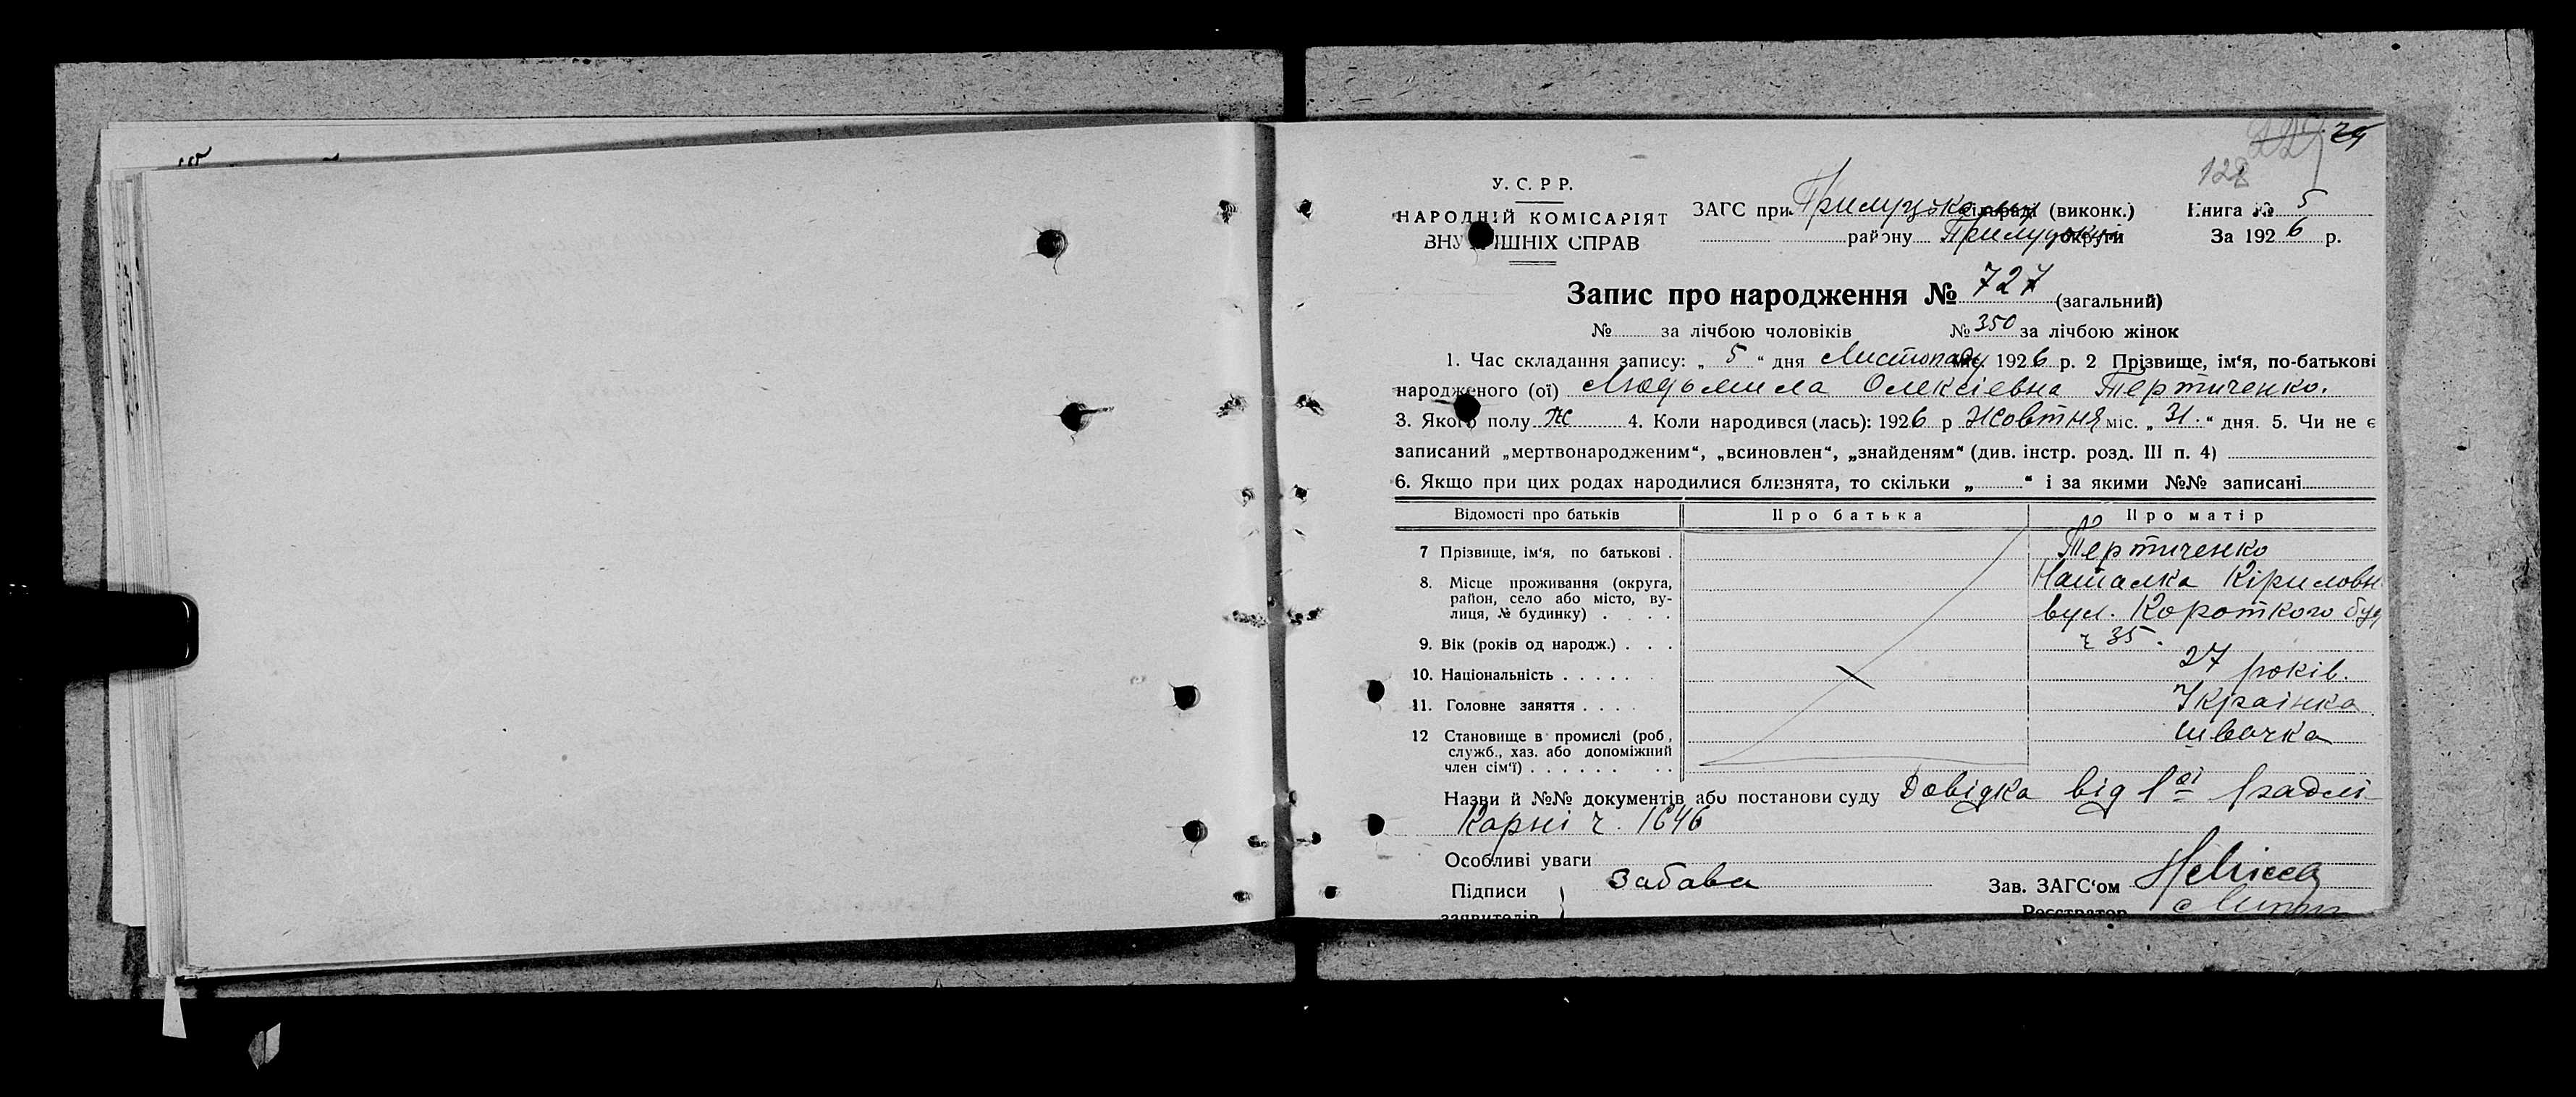 128
У. С. Р Р.
НАРОДНІЙ КОМІСАРІЯТ
ВНУ ІШНІХ СПРАВ
ЗАГС при Прилуцько сільраді (виконк.)
району Прилуцької округи
Книга № 5
За 1926 р.
Запис про народження № 727 (загальний)
№ за лічбою чоловіків № 350 за лічбою жінок
1. Час складання запису: „ 5 “ дня Листопаду міс. 1926 р. 2 Прізвище, ім‘я, по-батькові
народженого (ої) Людьмила Олексіевна Тертиченко.
3. Якого полу Ж 4. Коли народився (лась): 1926 р Жовтня міс. „ 31. “ дня. 5. Чи не є
записаний „мертвонародженим“, „всиновлен“, „знайденям“ (див. інстр. розд. III п. 4)
6. Якщо при цих родах народилися близнята, то скільки „ “ і за якими №№ записані
Відомості про батьків Про батька Про матір
7 Прізвище, ім‘я, по батькові . Тертиченко
8. Місце проживання (округа, Наталка Кіриловн
район, село або місто, ву-
лиця, № будинку) . . . . вул. Короткого буд
ч 35.
9. Вік (років од народж.) . . . 27 років.
10. Національність . . . . . . Українка
11. Головне заняття . . . . швачка
12 Становище в промислі (роб,
служб., хаз. або допоміжний
член сім‘ї) . . . . . . . .
Назви й №№ документів або постанови суду Довідка від 1ої радлі-
карні ч. 1646
Особливі уваги
Підписи
заявителів
Забава
Зав. ЗАГС‘ом
Реєстратор